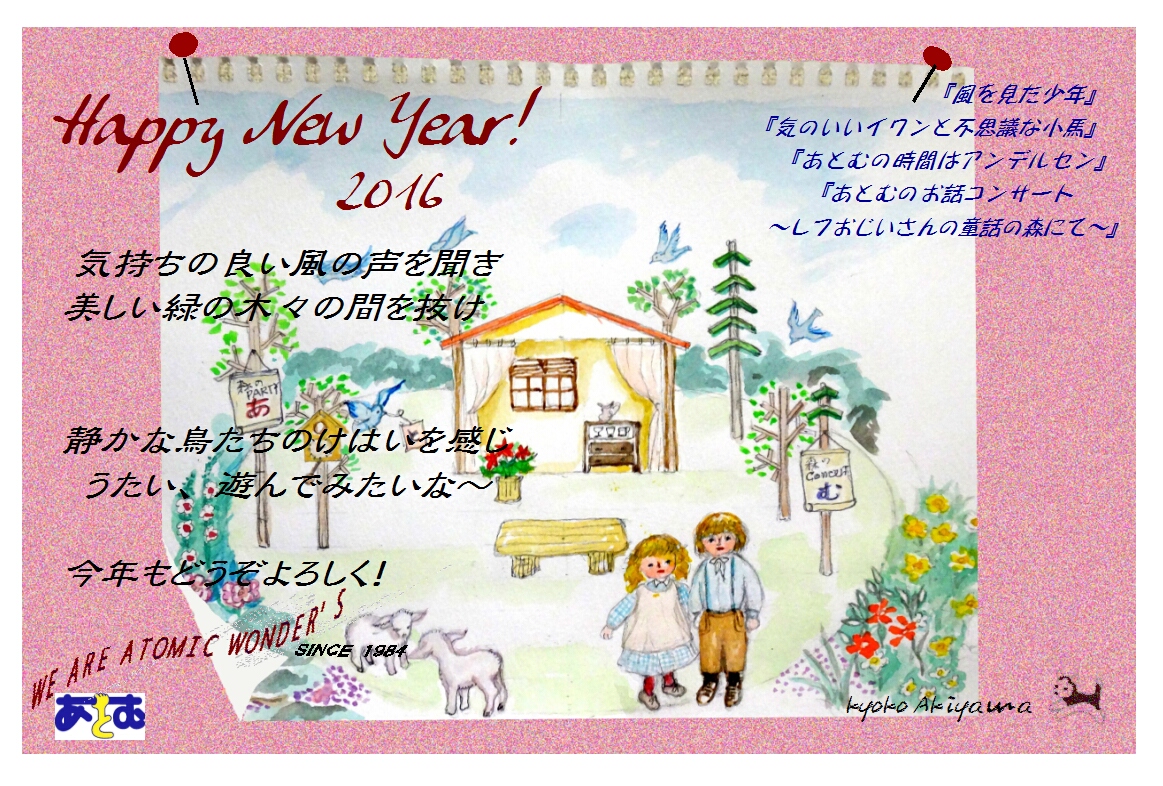 Happy New Year!
2016
『風を見た少年』
『気のいいイワンと不思議な小馬』
『あとむの時間はアンデルセン』
『あとむのお話コンサート
～レフおじいさんの童話の森にて～』
気持ちの良い風の声を聞き
美しい緑の木々の間を抜け
森の
PARTY
あ
静かな鳥たちのけはいを感じ
うたい、遊んでみたいな～
森の
Concert
む
今年もどうぞよろしく!
WE ARE ATOMIC WONDER'S
SINCE 1984
あとむ
kyoko Akiyama